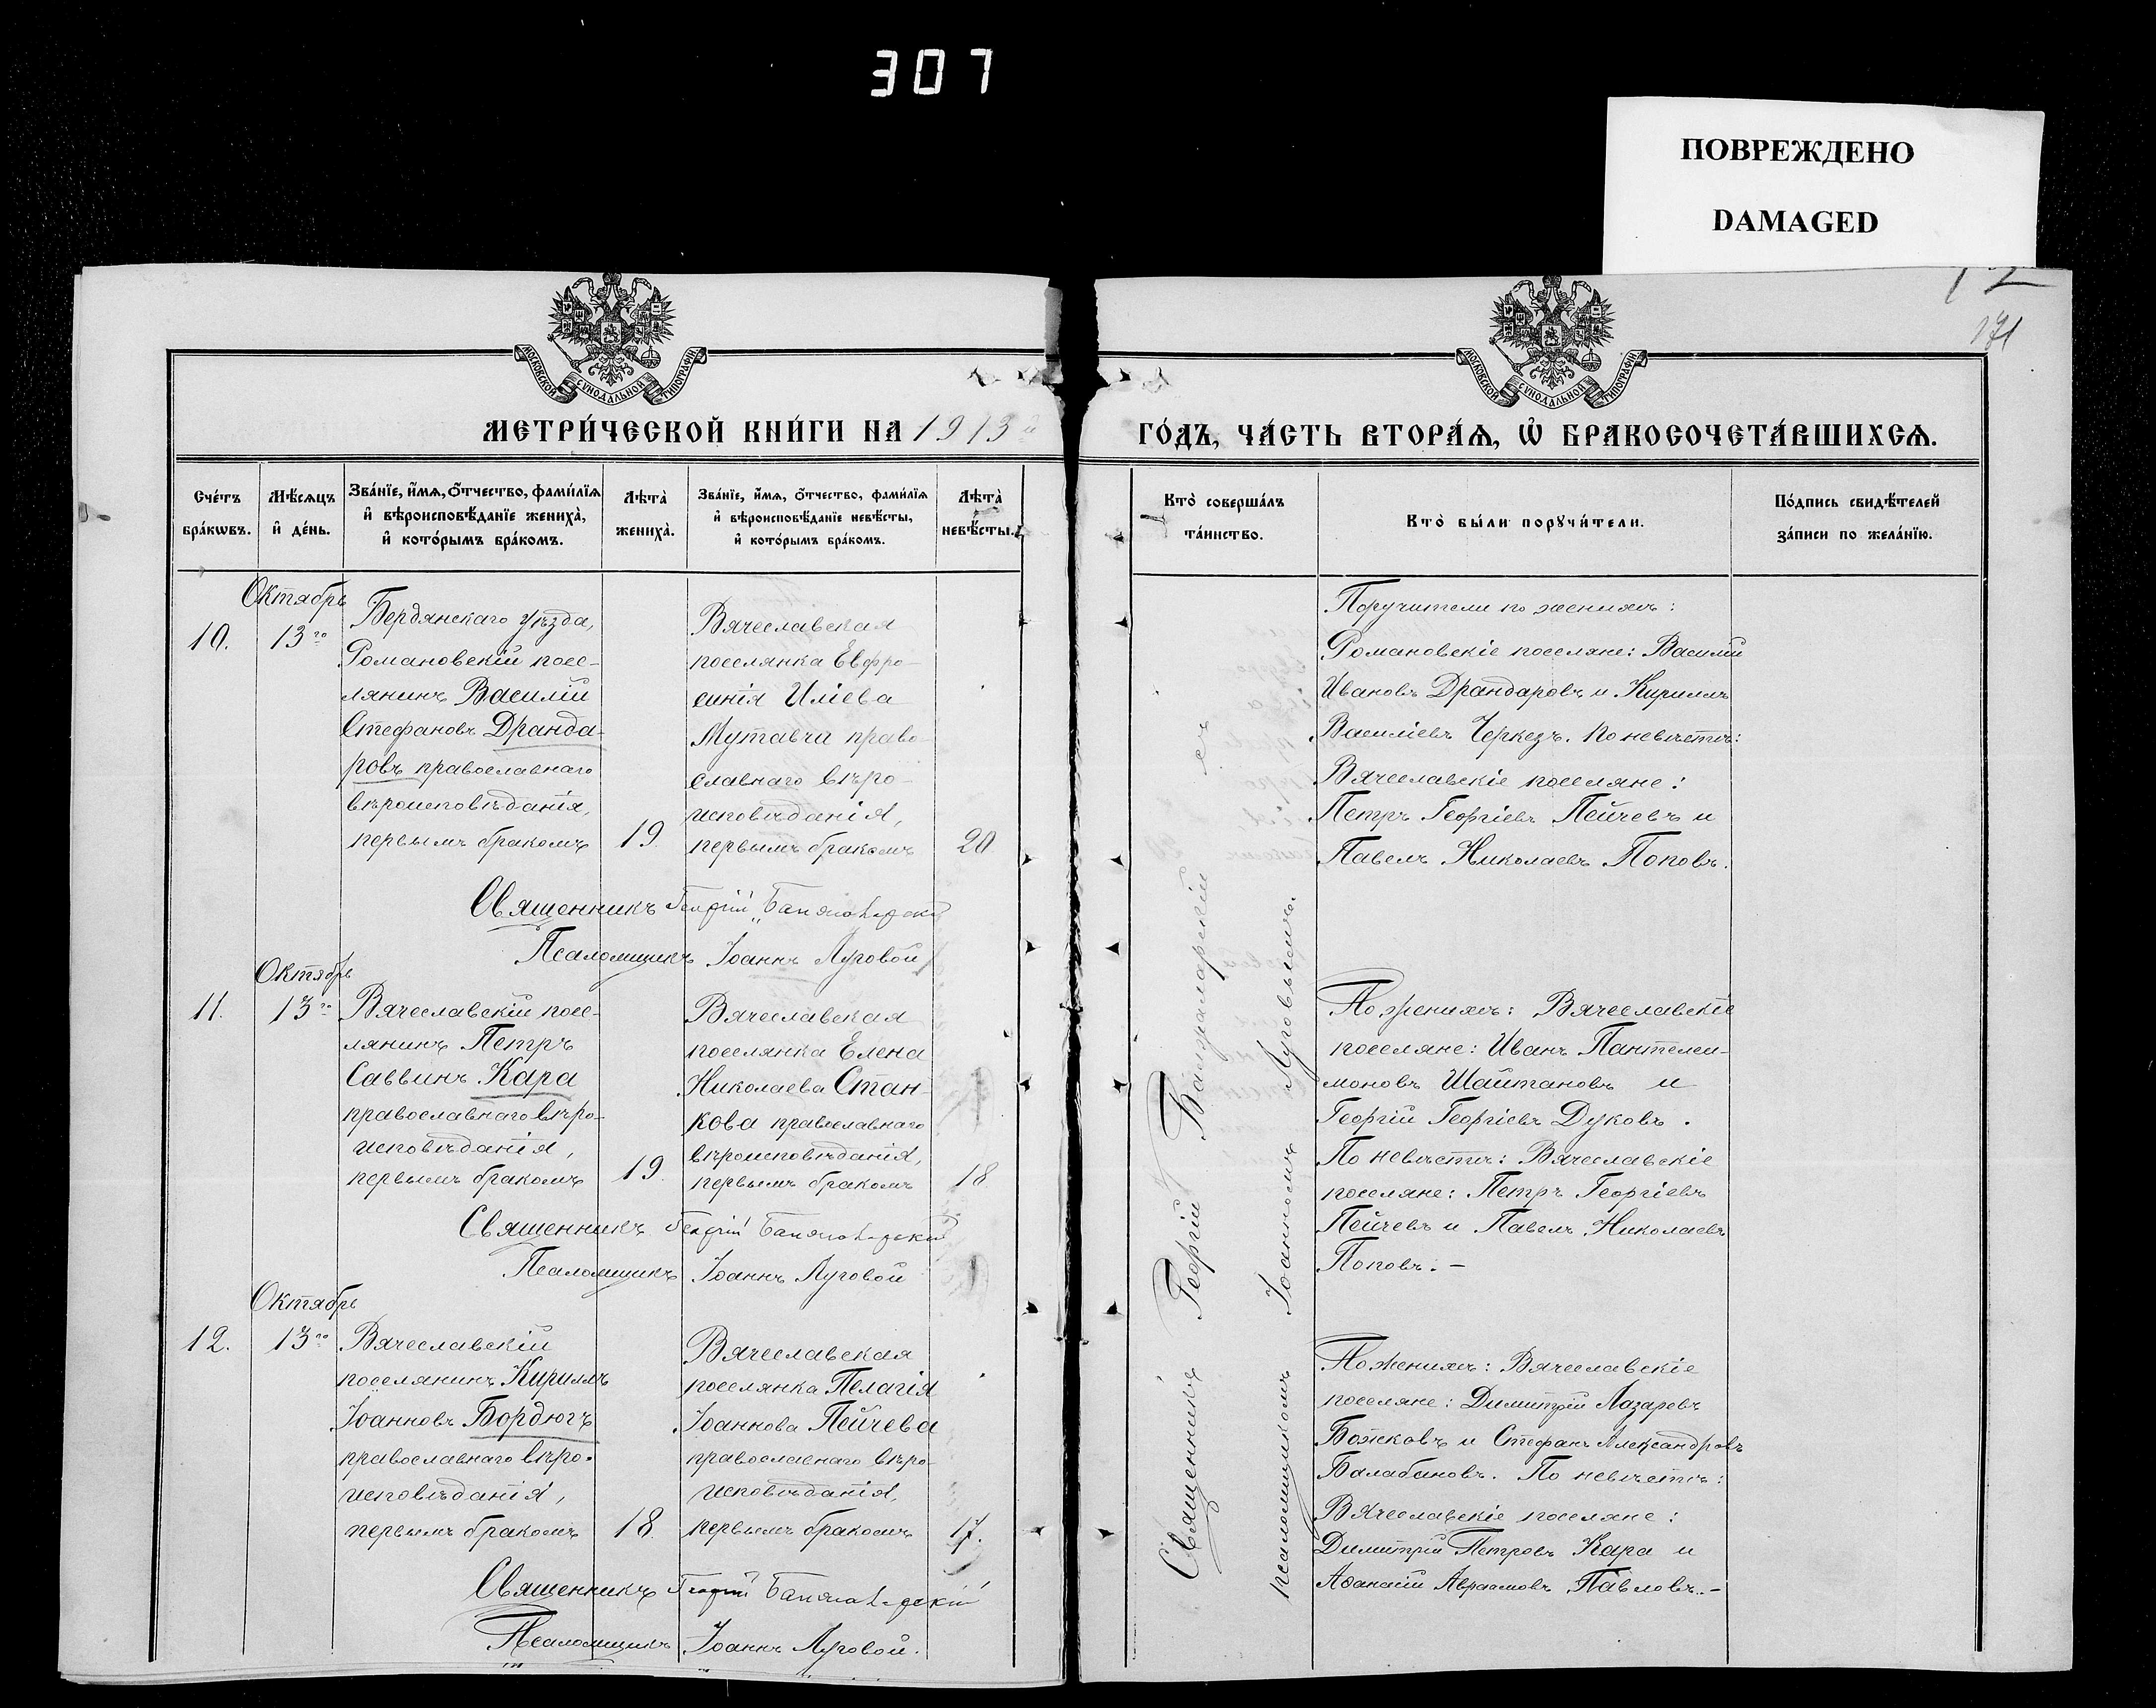 307
ПОВРЕЖДЕНО
DAMAGED
12
171
МОСКОВСКОЙ СѴНОДАЛЬНОЙ ТИПОГРАФІИ
МОСКОВСКОЙ СѴНОДАЛЬНОЙ ТИПОГРАФІИ
МЕТРИ́ЧЕСКОЙ КНИ́ГИ НА 1913
ГО́ДЪ, ЧА́СТЬ ВТОРА́Ѧ, Ѡ҆ БРАКОСОЧЕТА́ВШИХСѦ.
Сче́тъ
бра́кѡвъ.
Мѣ́сѧцъ
и҆ де́нь.
Зва́нїе, и҆́мѧ, о҆́тчество, фами́лїѧ
и҆ вѣроисповѣ́данїе жениха̀,
и҆ кото́рымъ бра́комъ.
Лѣта̀
жениха̀.
Зва́нїе, и҆́мѧ, о҆́тчество, фами́лїѧ
и҆ вѣроисповѣ́данїе невѣ́сты,
и҆ кото́рымъ бра́комъ.
Лѣта̀
невѣ́сты.
Кто̀ соверша́лъ
та́инство.
Кто̀ бы́ли порꙋчи́тели.
По́дпись свидѣ́телей
за́писи по жела́нїю.
10.
Октябрь
13го
Бердянскаго уѣзда,
Романовскій посе-
лянинъ Василій
Стефановъ Дранда-
ровъ православнаго
вѣроисповѣданія,
первымъ бракомъ
19.
Вячеславская
поселянка Евфро-
синія Иліева
Мутавчи право-
славнаго вѣро-
исповѣданія,
первымъ бракомъ
20
Поручители по женихѣ:
Романовскіе поселяне: Василій
Ивановъ Драндаровъ и Кириллъ
Василіевъ Черкезъ. По невѣстѣ:
Вячеславскіе поселяне:
Петръ Георгіевъ Пейчевъ и
Павелъ Николаевъ Поповъ.
Священникъ Георгій
Псаломщикъ Іоаннъ Луговой
11.
Октябрь
13го
Вячеславскій посе-
лянинъ Петръ
Саввинъ Кара
православнаго вѣро-
исповѣданія,
первымъ бракомъ
19.
Вячеславская
поселянка Елена
Николаева Стан-
кова православнаго
вѣроисповѣданія,
первымъ бракомъ
18
По женихѣ: Вячеславскіе
поселяне: Иванъ Пантелеи-
моновъ Шайтановъ и
Георгій Георгіевъ Дуковъ.
По невѣстѣ: Вячеславскіе
поселяне: Петръ Георгіевъ
Пейчевъ и Павелъ Николаевъ
Поповъ.-
Священникъ Георгій
Псаломщикъ Іоаннъ Луговой
12.
Октябрь
13го
Вячеславскій
поселянинъ Кириллъ
Іоанновъ Бордюгъ
православнаго вѣро-
исповѣданія,
первымъ бракомъ
18.
Вячеславская
поселянка Пелагія
Іоаннова Пейчева
православнаго вѣро-
исповѣданія,
первымъ бракомъ
17.
По женихѣ: Вячеславскіе
поселяне: Димитрій Лазаревъ
Божковъ и Стефанъ Александровъ
Балабановъ. По невѣстѣ:
Вячеславскіе поселяне:
Димитрій Петровъ Кара и
Аѳанасій Авраамовъ Павловъ.-
Священникъ Георгій
Псаломщикъ Іоаннъ Луговой.
Священникъ Георгій съ
псаломщикомъ Іоанномъ Луговымъ.